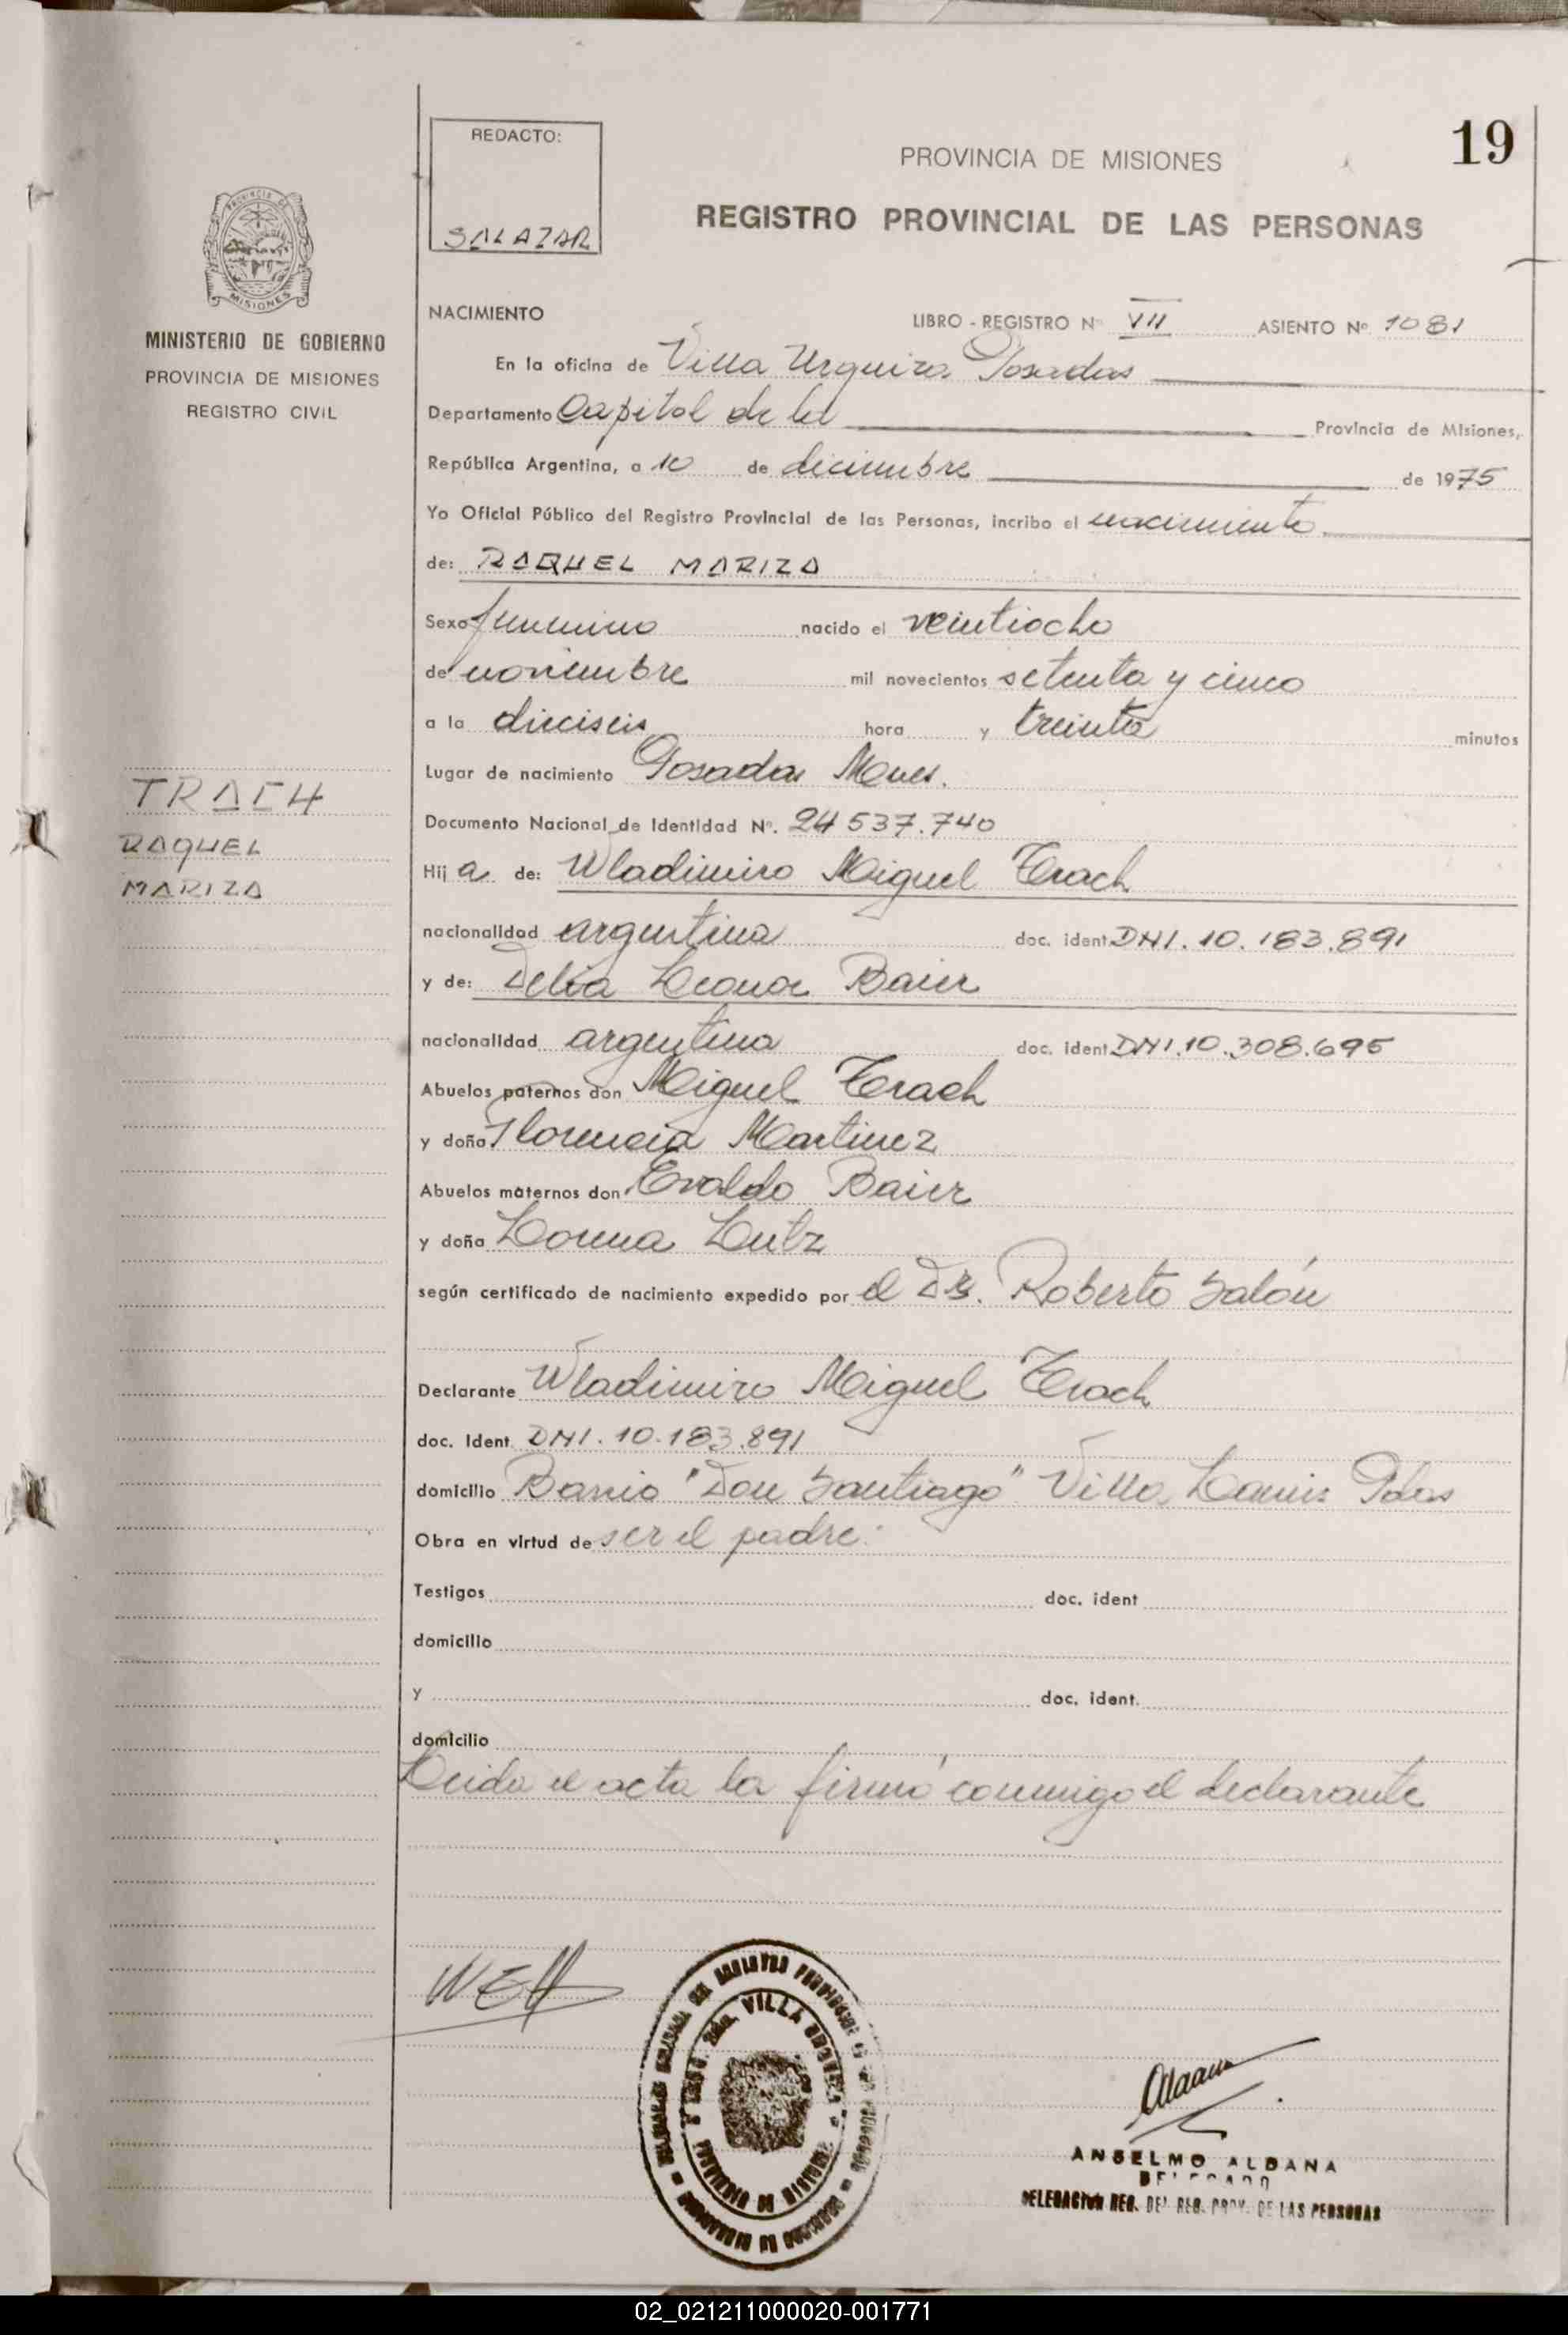 19
REDACTO:
SALAZAR
PROVINCIA DE MISIONES
REGISTRO PROVINCIAL DE LAS PERSONAS
MISIONES
MINISTERIO DE GOBIERNO
PROVINCIA DE MISIONES
REGISTRO CIVIL
NACIMIENTO LIBRO - REGISTRO Nº VII ASIENTO Nº 1081
En la oficina de Villa Urquiza Posadas
Departamento Capital de la Provincia de Misiones,
República Argentina, a 10 de diciembre de 1975
Yo Oficial Público del Registro Provincial de las Personas, incribo el nacimiento
de: RAQUEL MARIZA
Sexo femenino nacido el veintiocho
de noviembre mil novecientos setenta y cinco
a la dieciseis hora y treinta minutos
Lugar de nacimiento Posadas Mnes.
Documento Nacional de Identidad Nº. 24 537.740
TRACH
RAQUEL
MARIZA
Hija de: Wladimiro Miguel Trach
nacionalidad argentina doc. ident DNI. 10.183.891
y de: Delia Leonor Baier
nacionalidad argentina doc. ident DNI.10.308.695
Abuelos paternos don Miguel Trach
y doña Florencia Martinez
Abuelos maternos don Evaldo Baier
y doña Lorena Lutz
según certificado de nacimiento expedido por el Dr. Roberto Salón
Declarante Wladimiro Miguel Trach
doc. Ident DNI. 10.183.891
domicilio Barrio "Don Santiago" Villa Lanus Pdas
Obra en virtud de ser el padre.
Testigos doc. ident
domicilio
y doc. ident.
domicilio
Leida el acta la firmó conmigo el declarante
VILLA URQUIZA
PROVINCIA DE MISIONES
ANSELMO ALDANA
DELEGADO
DELEGACION REG. DEL REG. PROV. DE LAS PERSONAS
02_021211000020-001771